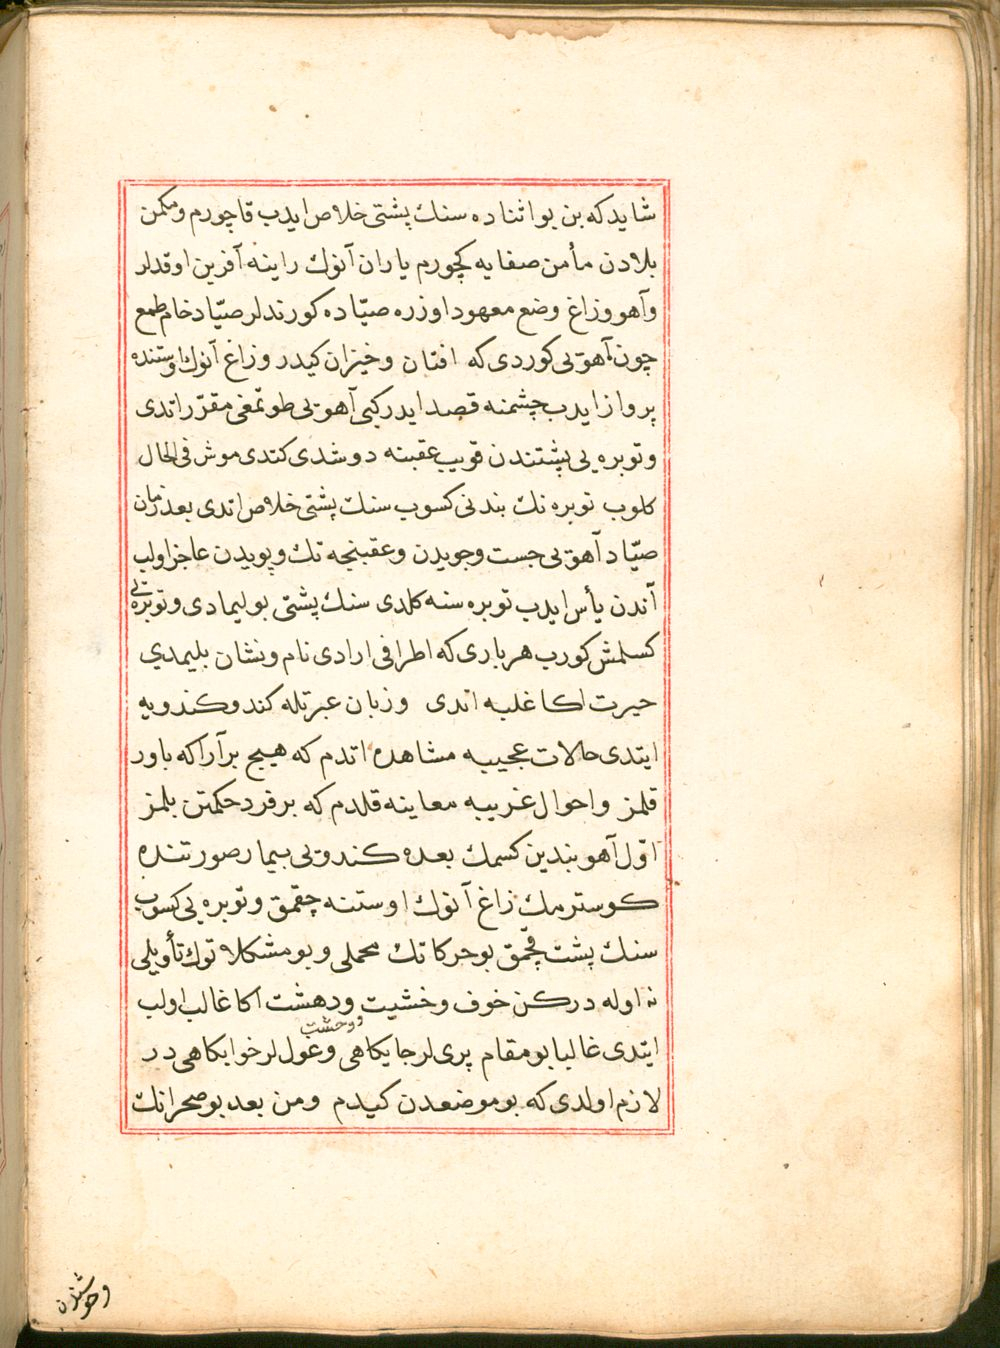 شايدكه بن بو اثناده سنك پشتى خلاص ايدب قاچورم ومكمن
بلادن مأمن صفايه كچورم ياران آنوك راينه آفرين اوقدلر
وآهو وزاغ وضع معهود اوزره صيّاده كورندلر صيّاد خام طمع
چون آهويى كوردى كه افتان وخيزان كيدر وزاغ آنوك اوستنده
پرواز ايدب چشمنه قصد ايدر كبى آهويى طوتمغى مقرّر اتدى
وتوبره يى پشتندن قويب عقبنه دوشدى كتدى موش فى الحال
كلوب توبره نك بندنى كسوب سنك پشتى خلاص اتدى بعد زمان
صيّاد آهويى جست وجويدن وعقبنجه تك وپويدن عاجز اولب
آندن يأس ايدب توبره سنه كلدى سنك پشتى بوليمادى وتوبره يى
كسلمش كورب هر بارى كه اطرافى ارادى نام ونشان بليمدي
حيرت اكا غلبه اتدى وزبان عبرتله كندو كندويه
ايتدى حالات عجيبه مشاهده اتدم كه هيچ بر آرا كه باور
قلمز واحوال غريبه معاينه قلدم كه بر فرد حكمتن بلمز
اوّل آهو بندين كسمك بعده كندويى بيمار صورتنده
كوسترمك زاغ آنوك اوستنه چقمق وتوبره يى كسوب
سنك پشت قچمق بو حركاتك محملى وبو مشكلاتوك تأويلى
نه اوله دركن خوف وخشيت ودهشت اكا غالب اولب
ووحشت
ايتدى غالبا بو مقام پرى لر جايكاهى وغول لر خوابكاهى در
لازم اولدى كه بو موضعدن كيدم ومن بعد بو صحرانك
وحوشندن